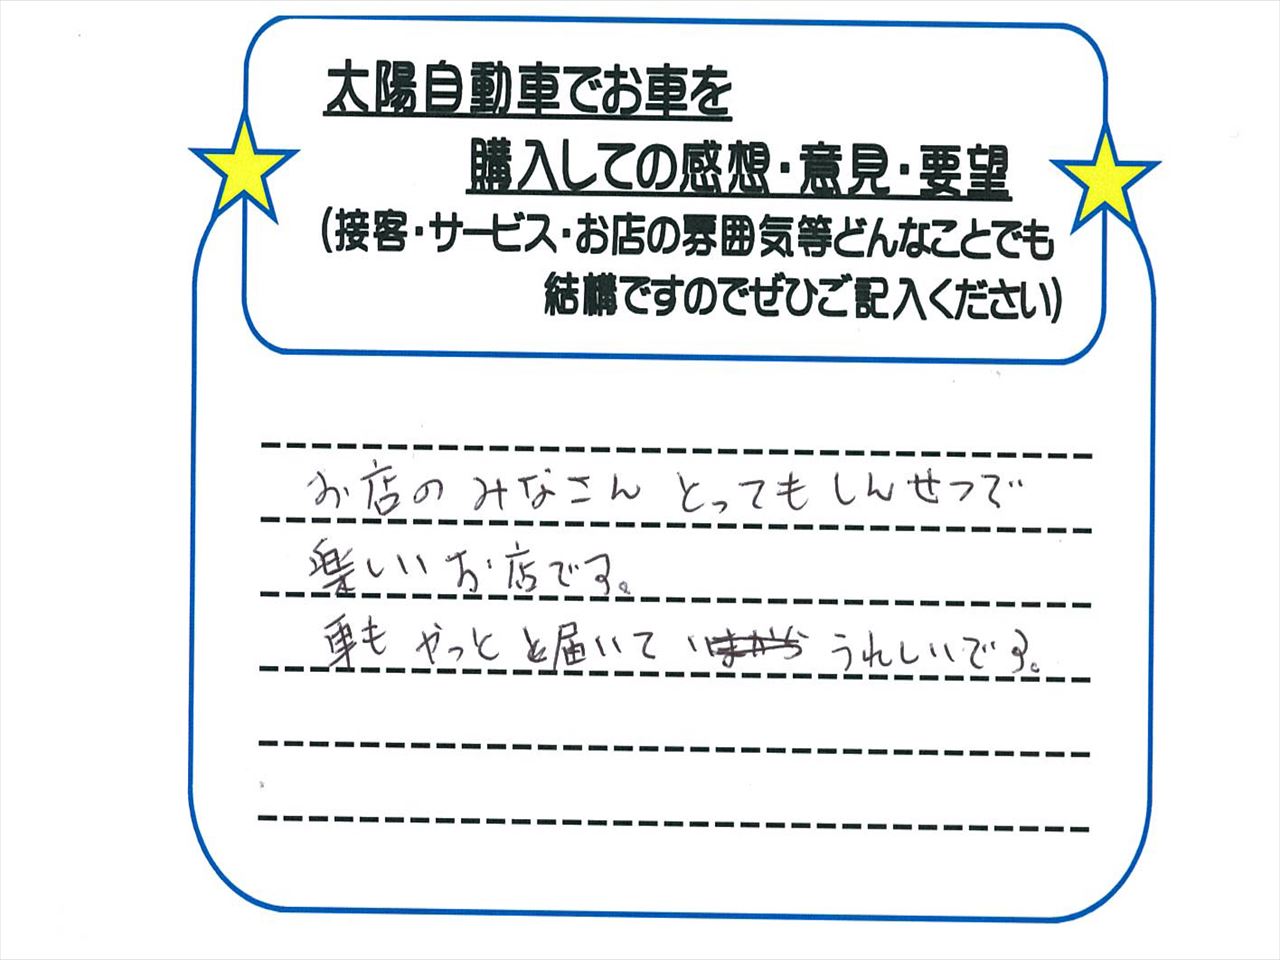 太陽自動車でお車を
購入しての感想・意見・要望
(接客・サービス・お店の雰囲気等どんなことでも
結構ですのでぜひご記入ください)
お店のみなさん とっても しんせつで
楽しい お店です。
車も やっと 届いて うれしいです。